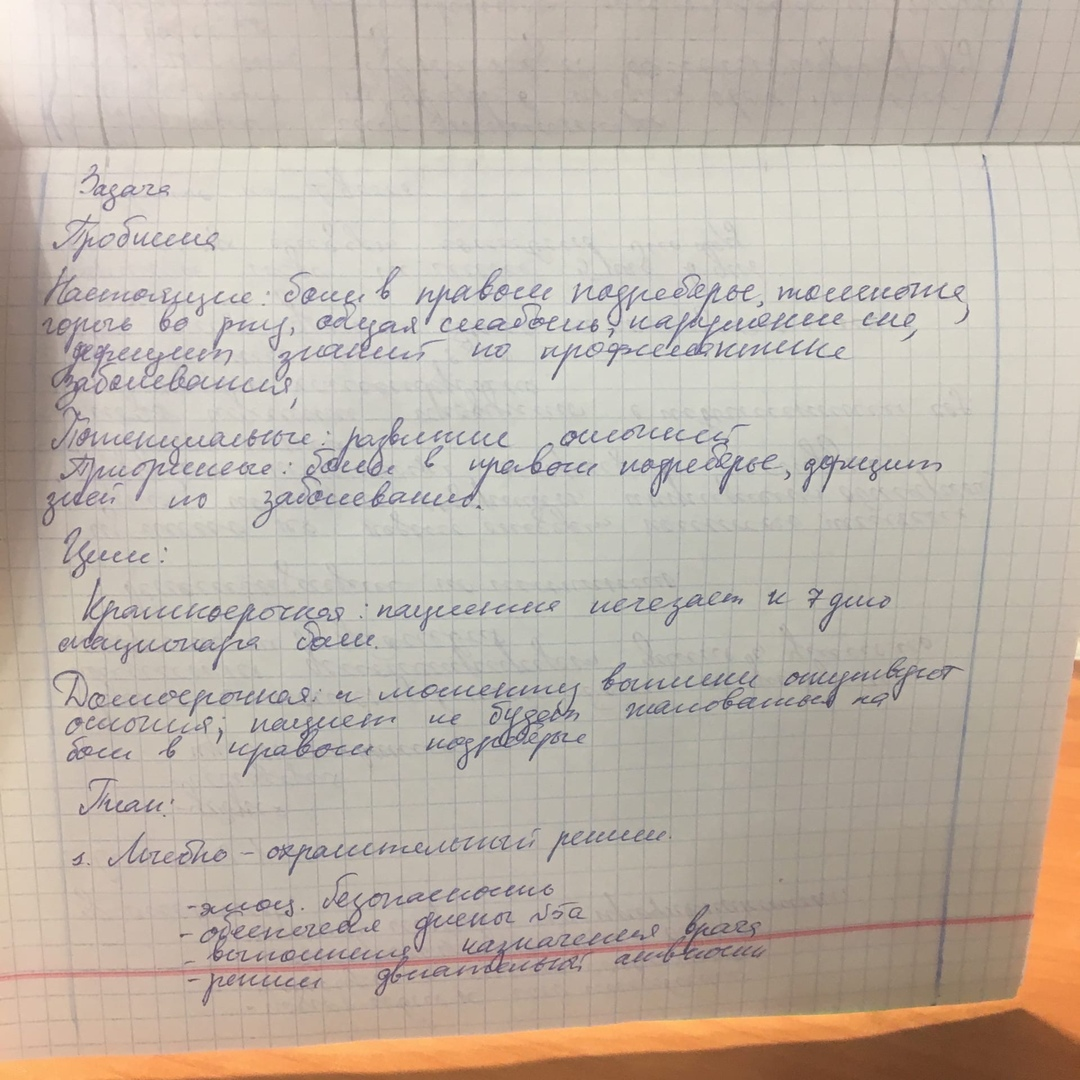 Задача
Проблема
Настоящие: боли в правом подреберье, тошнота,
горечь во рту, общая слабость, нарушение сна,
дефицит знаний по профилактике
заболевания,
Потенциальные: развитие осложнений
Приоритные: боли в правом подреберье, дефицит
зней по заболеванию.
Цели:
Краткосрочная: пациента исчезает к 7 дню
стационара боли.
Долгосрочная: к моменту выписки отсутвуют
ослония, пациент не будет жаловаться на
боли в правом подреберье
План:
1. Лечебно - охранительный режим.
- эмоц. безопасность
- обеспечения диеты №5а
- выполнения назначения врача
- режим двигательной активности